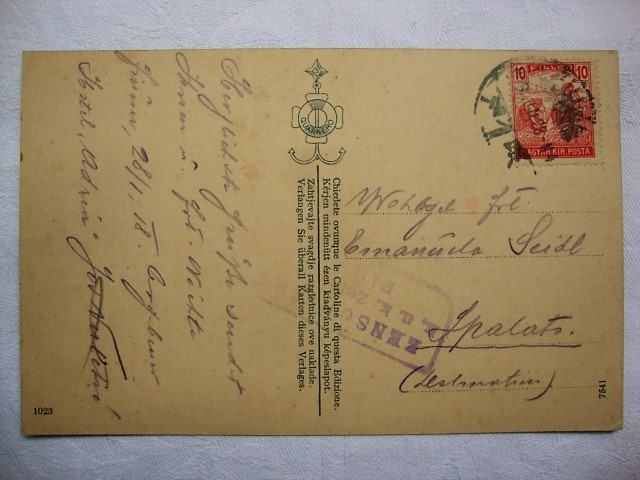 Herzlichste Grüße sendet
Ihnen u. Frl. Nichte
Fiume, 28/1. 18.
Hotel „Adria"
QUARNERO
Chiedete ovunque le Cartoline di questa Edizione.
Kérjen mindenütt ézen kiadványu képeslapot.
Zahtjevajte svagdje razglednice ove naklade.
Verlangen Sie überall Karten dieses Verlages.
10 FILLÉR 10
MAGYAR KIR. POSTA
Wohlgb. Frl.
Emanuela Seidl
Spalato.
(Dalmatien)
ZENSU
u. k.
1023
7541